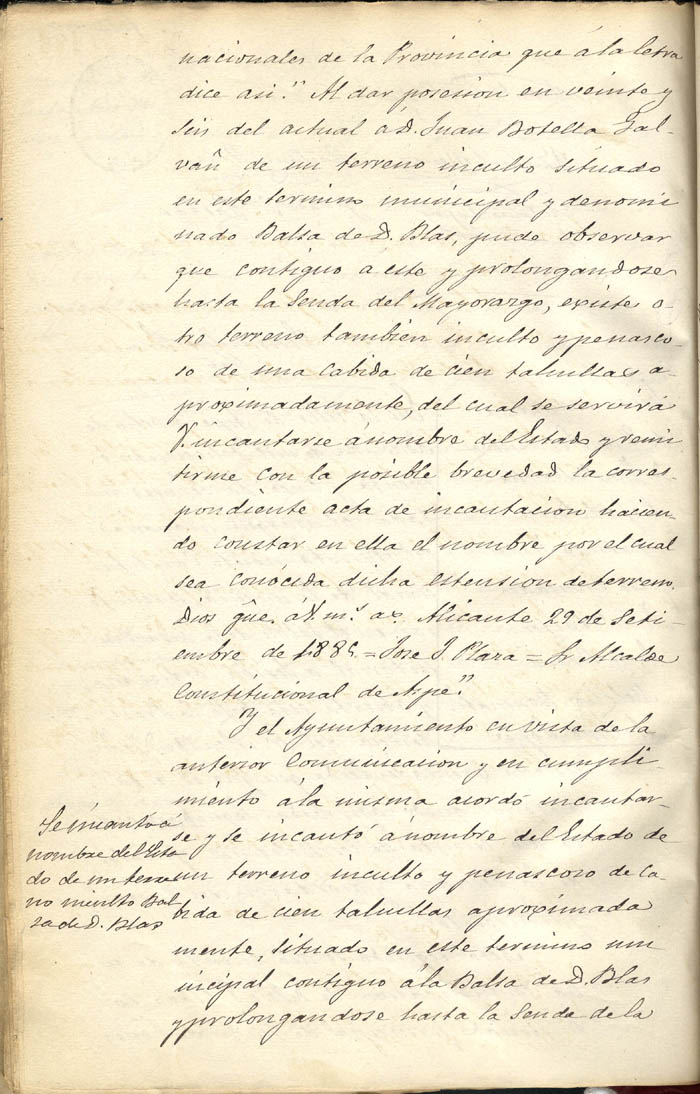 nacionales de la Provincia que á la letra
dice asi." Al dar posesion en veinte y
seis del actual á D. Juan Botella Gal-
vañ de un terreno inculto situado
en este termino municipal y denomi
nado Balsa de D. Blas, pude observar
que contiguo á este y prolongandose
hasta la Senda del Mayorazgo, existe o-
tro terreno tambien inculto y penasco-
so de una cabida de cien tahullas a-
proximadamente, del cual se servirá
V. incautarse á nombre del Estado y remi
tirme con la posible brevedad la corres-
pondiente acta de incautacion hacien-
do constar en ella el nombre por el cual
sea conócida dicha estension de terreno.
Dios gûe. á V. m.s a.s Alicante 29 de Seti-
embre de 1885.=Jose J. Plaza = Sr Alcalde
Constitucional de Aspe."
Y el Ayuntamiento en vista de la
anterior Comunicacion y en cumpli-
miento á la misma acordó incautar-
se y se incautó á nombre del Estado de
un terreno inculto y penascoso de ca-
bida de cien tahullas aproximada
mente, situado en este termino mu
nicipal contiguo á la Balsa de D. Blas
y prolongandose hasta la Senda de la
Se incautó á
nombre del Esta
do de un terre
no inculto Bal
sa de D. Blas